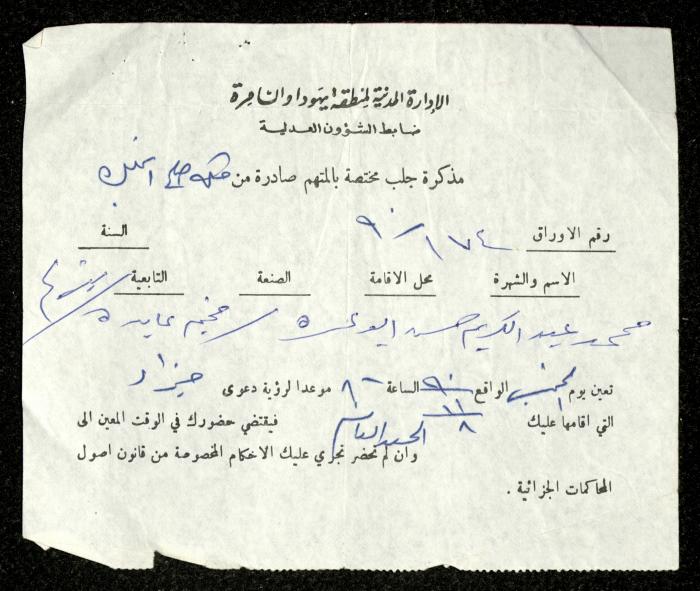 الإدارة المدنية لمنطقة يهودا والسامرة
ضابط الشؤون العدلية
مذكرة جلب مختصة بالمتهم صادرة من محكمة صلح
رقم الاوراق ٩٠/١٧٤ السنة
الاسم والشهرة محل الاقامة الصنعة التابعية
محمد عبد الكريم حسن ابو / مخيم عايدة
تعين يوم الخميس الواقع ٩٠/١١/٨ الساعة ٨ موعدا لرؤية دعوى
التي اقامها عليك الحق العام فيقتضي حضورك في الوقت المعين الى
وان لم تحضر تجري عليك الاحكام المخصوصة من قانون اصول
المحاكمات الجزائية .